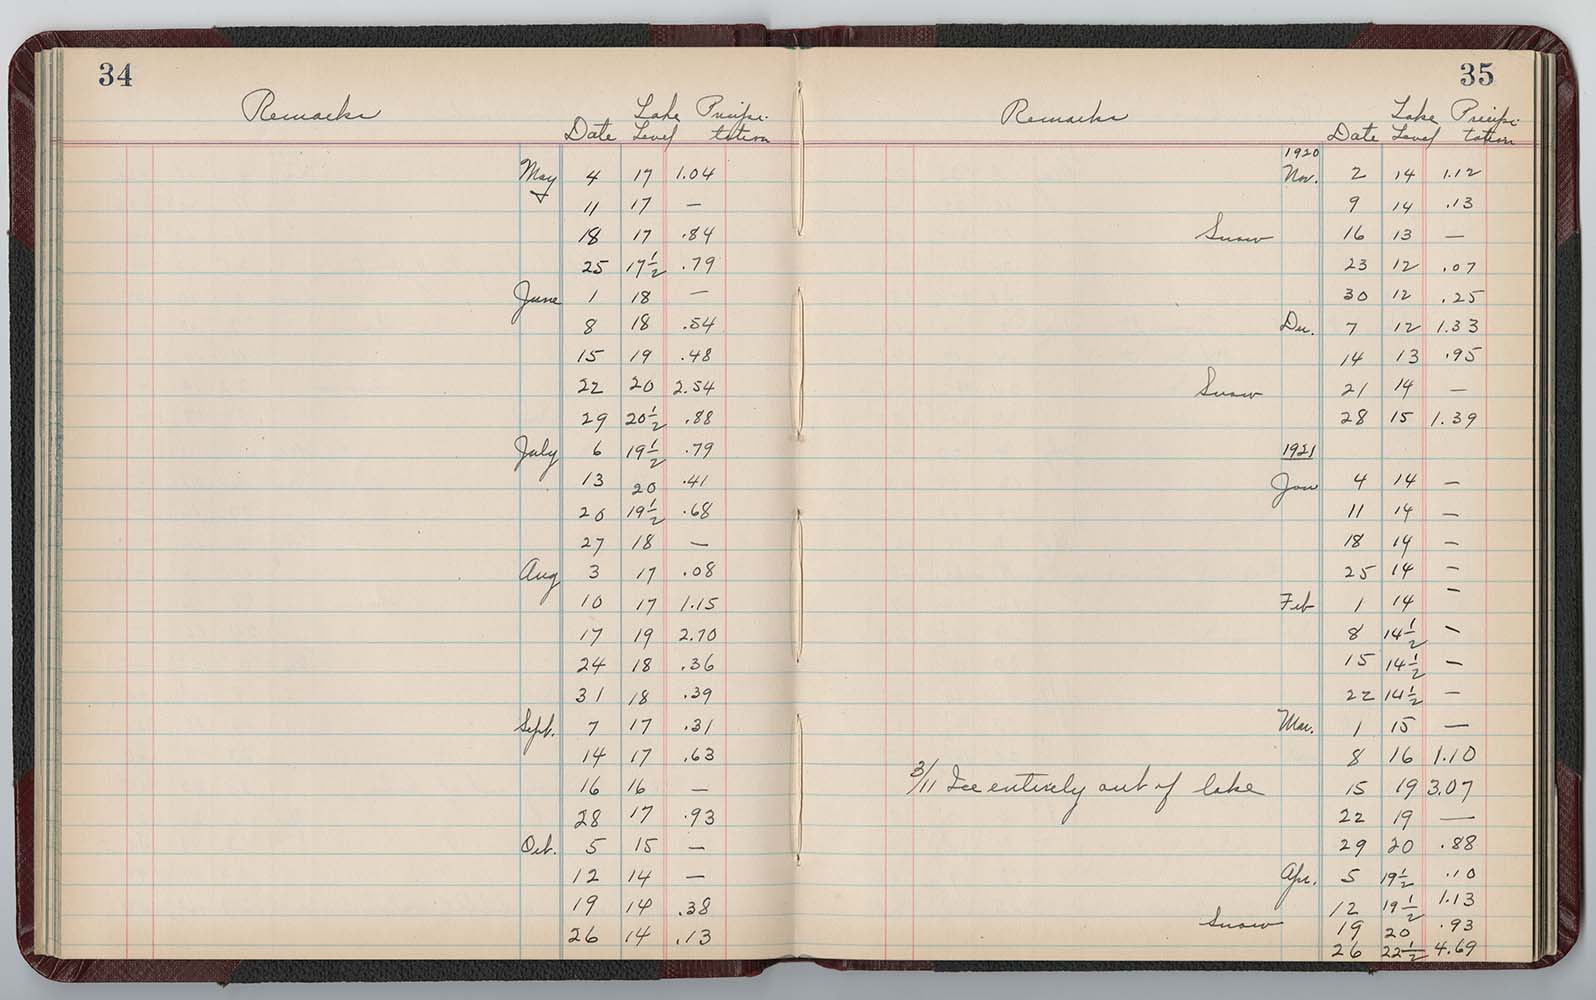 34
Remarks Date Lake Level Precipi-tation
May 4 17 1.04
11 17 —
18 17 .84
25 17½ .79
June 1 18 —
8 18 .54
15 19 .48
22 20 2.54
29 20½ .88
July 6 19½ .79
13 20 .41
20 19½ .68
27 18 —
Aug 3 17 .08
10 17 1.15
17 19 2.70
24 18 .36
31 18 .39
Sept. 7 17 .31
14 17 .63
16 16 —
28 17 .93
Oct. 5 15 —
12 14 —
19 14 .38
26 14 .13
35
Remarks Date Lake Level Precipi-tation
1920
Nov. 2 14 1.12
9 14 .13
Snow 16 13 —
23 12 .07
30 12 .25
Dec. 7 12 1.33
14 13 .95
Snow 21 14 —
28 15 1.39
1921
Jan 4 14 —
11 14 —
18 14 —
25 14 —
Feb 1 14 —
8 14½ —
15 14½ —
22 14½ —
Mar. 1 15 —
8 16 1.10
3/11 Ice entirely out of lake 15 19 3.07
22 19 —
29 20 .88
Apr. 5 19½ .10
12 19½ 1.13
Snow 19 20 .93
26 22½ 4.69